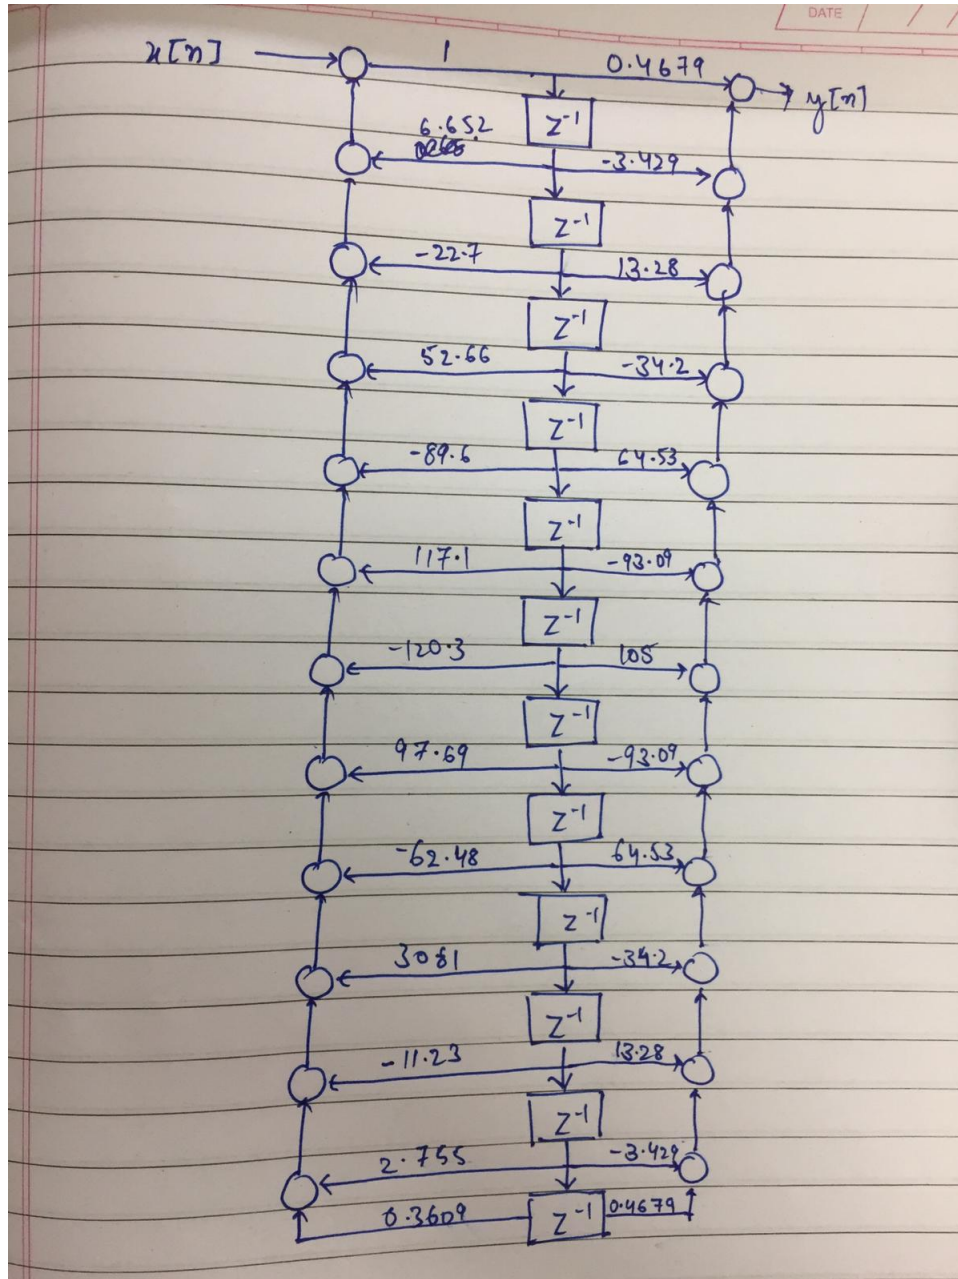 DATE
x[n] 1 0.4679 y[n]
z-1
6.652 -3.429
z-1
-22.7 13.28
z-1
52.66 -34.2
z-1
-89.6 64.53
z-1
117.1 -93.09
z-1
-120.3 105
z-1
97.69 -93.09
z-1
-62.48 64.53
z-1
3081 -34.2
z-1
-11.23 13.28
z-1
2.755 -3.429
0.3609 z-1 0.4679